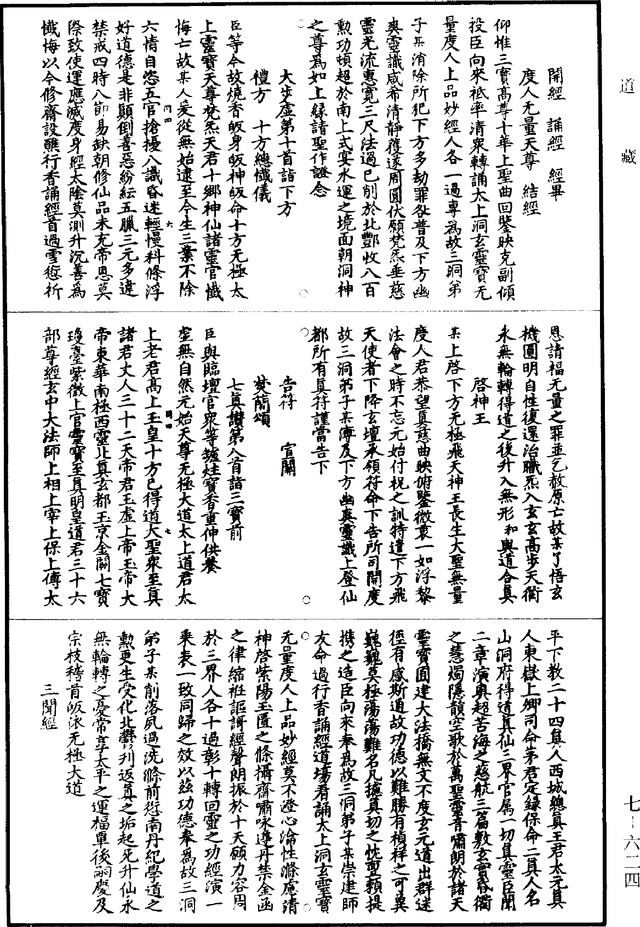 道藏
開經　誦經　經畢
度人无量天尊　結經
仰惟三寶高尊十華上聖曲回鑒映克副傾
投臣向來祗率清衆轉誦太上洞玄靈寶无
量度人上品妙經人各一過專為故三洞弟
子某消除所犯下方多劫罪咎普及下方幽
爽靈識咸希清靜獲遂周圓伏願梵炁垂慈
靈光流惠寬三尺法過已削於北酆收八百
勲功頃超於南上式宴水運之境面朝洞神
之尊為如上緣請聖作證念
大步虛第十首詣下方
禮方　十方總懺儀
臣等今故燒香皈身皈神皈命十方无極太
上靈寶天尊梵炁天君十鄉神仙諸靈官懺
悔亡故某人爰從無始逮至今生三業不除
六情自恣五官搶擾八識昏迷輕慢科條浮
好道德是非顛倒喜惡紛紜五臘三元多違
禁戒四時八節易缺朝修仙品未充帝恩莫
際致使運應滅度身經太陰莫測升沉善為
懺悔以今修齋設醮行香誦經首過雪愆祈
恩請福无量之罪並乞赦原亡故某了悟玄
機圓明自性復還治職炁入玄玄高步天衢
永無輪轉得道之後升入無形和與道合真
啓神王
某上啓下方无極飛天神王長生大聖無量
度人君恭望真慈曲映俯鑒微衷一如浮黎
法會之時不忘元始付祝之訓特遣下方飛
天使者下降玄壇承領符命下告所司開度
故三洞弟子某傳及下方幽爽靈識上登仙
都所有真符謹當告下
告符　官關
焚簡頌
七真讚第八首詣三寶前
臣與臨壇官衆等鑪炷寶香重伸供養
虛無自然元始天尊无極大道太上道君太
上老君高上玉皇十方已得道大聖衆至真
諸君丈人三十二天帝君玉虛上帝玉帝大
帝東華南極西靈北真玄都玉京金闕七寶
瓊臺紫微上宮靈寶至真明皇道君三十六
部尊經玄中大法師上相上宰上保上傅太
平下教二十四真人西城總真王君太元真
人東嶽上卿司命茅君定錄保命二真人名
山洞府得道真仙三界官屬一切真靈臣聞
二章演奧超苦海之慈航三篇敷玄實昏衢
之慧燭隱韻空歌於萬聖靈音嘯朗於諸天
靈寶圓建大法橋無文不度玄元道出群迷
徑有感斯通故功德以難勝有禎祥之可異
巍巍莫極蕩蕩難名凡攄真切之忱實賴提
攜之造臣向來奉為故三洞弟子某崇建師
友命過行香誦經道場看誦太上洞玄靈寶
无量度人上品妙經莫不證心淪性滌慮清
神啓紫陽玉匱之條攝齋肅水邊丹禁金函
之律縮袵謳謌經聲朗振於十天願力容周
於三界人各十過彰十轉回靈之功經演一
乘表一致同歸之效以茲功德奉為故三洞
弟子某削落夙過洗滌前愆南丹紀學道之
勲更生受化北酆刋返真之垢起死升仙永
無輪轉之憂常享太平之運福單後嗣慶及
宗枝稽首皈依无極大道
三聞經
七－六二四